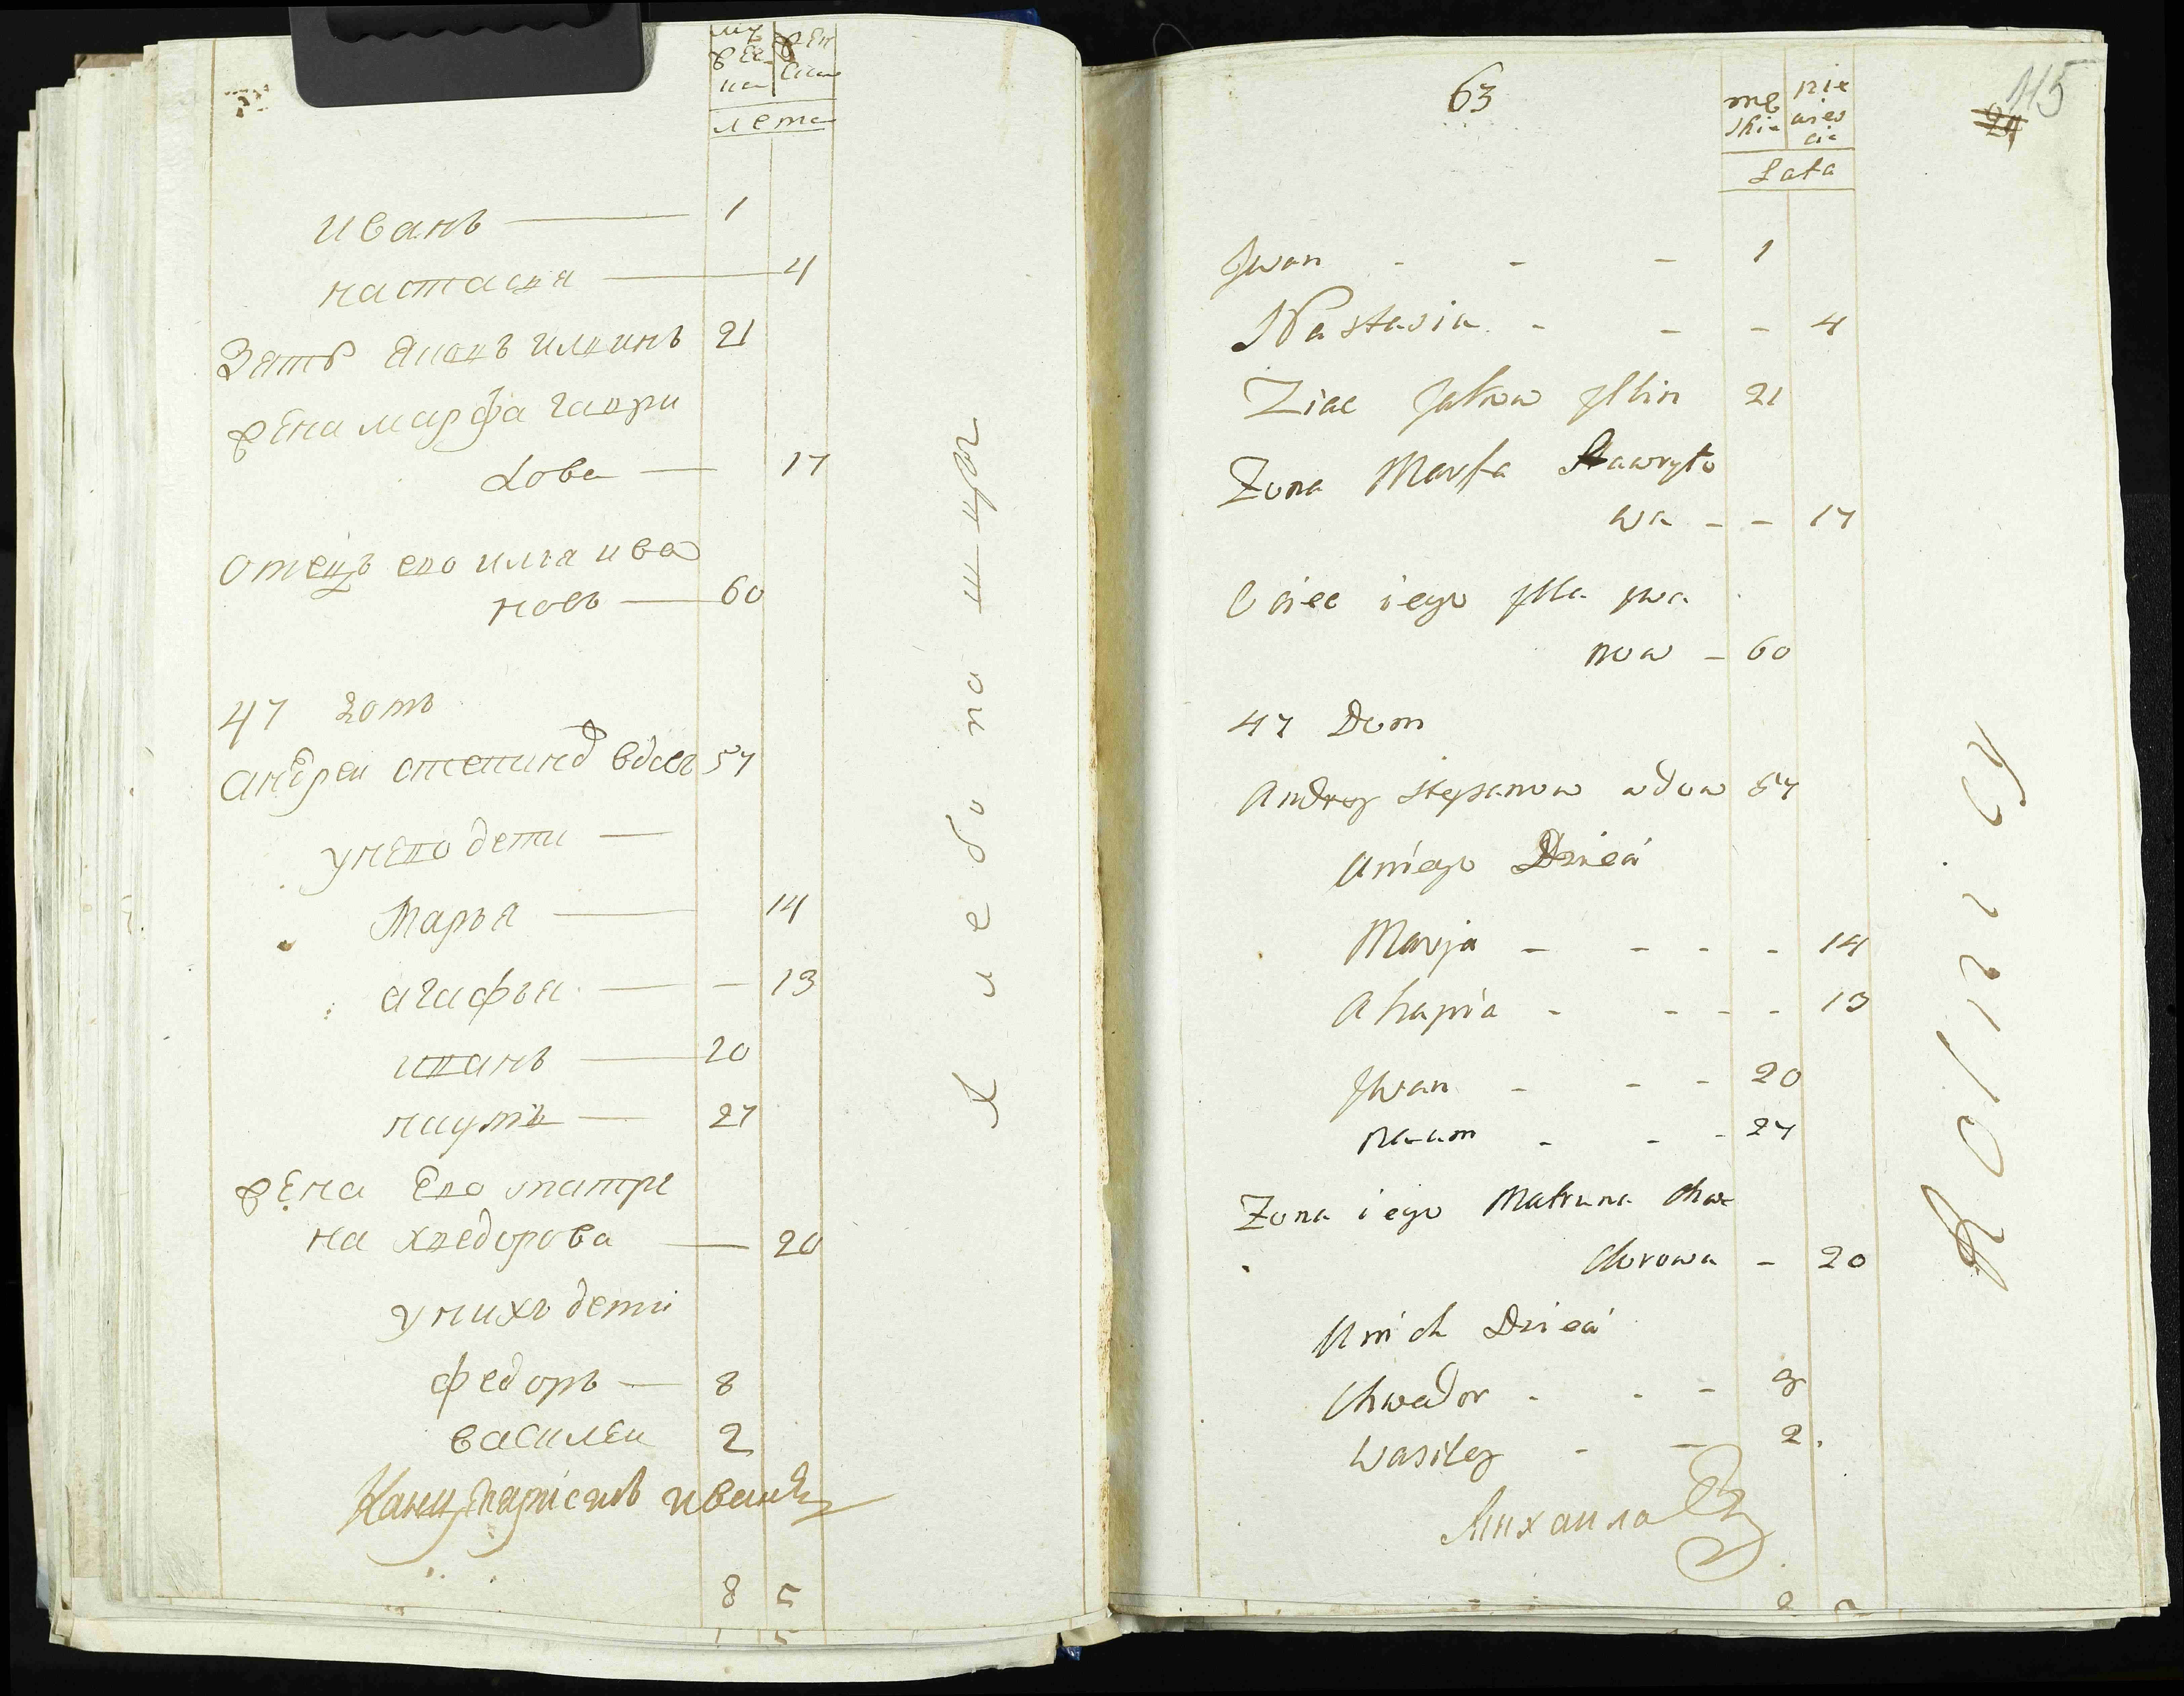 лета
иванъ 1
настасия 4
Зять яковъ илвинъ 21
жена марфа гаври
лова 17
отецъ его илия ива
новъ 60
47 домъ
андреи степановъ вдовъ 57
у него дети
Марья 14
агафья 13
иванъ 20
наумъ 27
жена Его матре
на хведорова 20
у нихъ дети
федоръ 8
василеи 2
8 5
Хлебопашцы
63
115
24
mę
skie
nie
wies
cie
Lata
Jwan - - - 1
Nastasia - - - 4
Ziać Jakow Jlbin 21
Zona Marfa Hawryło
wa - - 17
Ociec iego Jlla Jwa
now - 60
47 Dom
Andrey Stepanow wdow 57
Uniego Dzieci
Marja - - - - 14
Ahapia - - - - 13
Jwan - - - 20
Naum - - - 27
Zona iego Matruna Chwe
dorowa - 20
Unich Dzieci
Chwedor - - - 8
Wasiley - - 2.
Михаила
Rolnicy